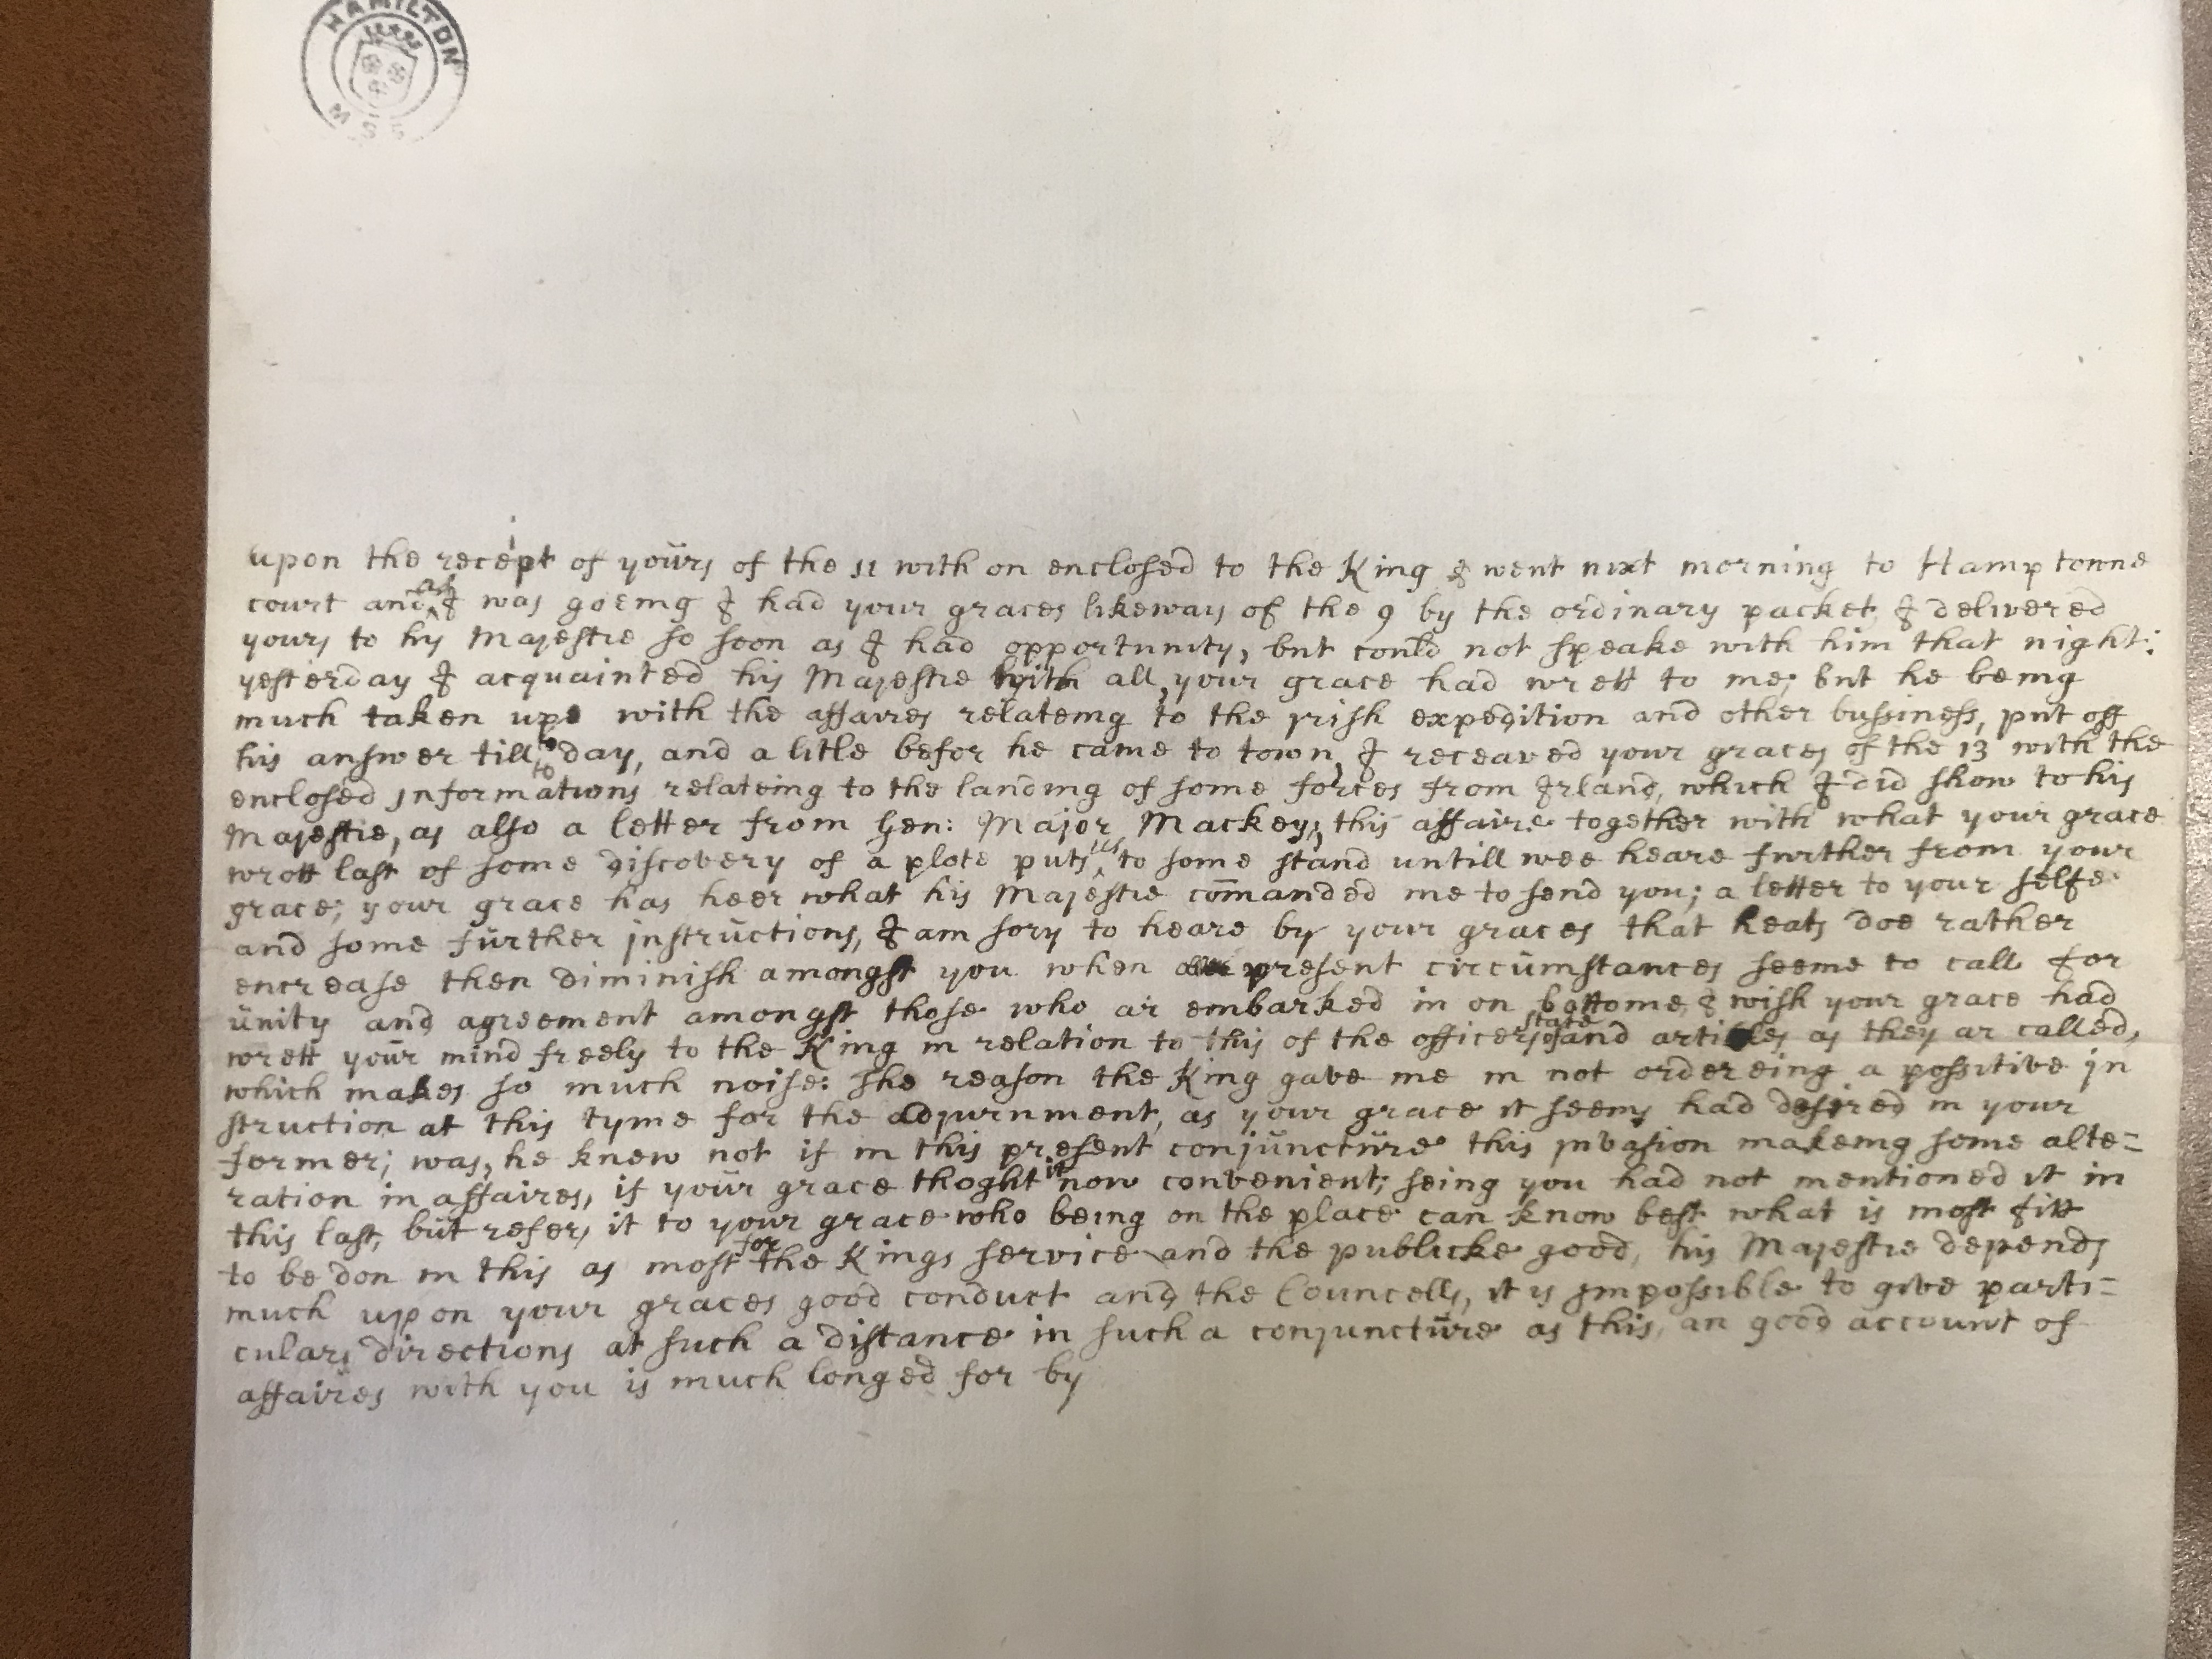 HAMILTON
MSS
upon the receipt of yours of the 11 with on enclosed to the King I went nixt morning to Hamptonne
court and as I was goeing I had your graces likeways of the 9 by the ordinary packet, I delivered
yours to his Majestie so soon as I had opportunity, but could not speake with him that night:
yesterday I acquainted his Majestie with all, your grace had wrett to me; but he being
much taken up with the affaires relateing to the irish expedition and other bussiness, put off
his answer till to day, and a litle befor he came to town, I receaved your graces of the 13 with the
enclosed informations relateing to the landing of some forces from Irland, which I did show to his
Majestie, as also a letter from Gen: Major Mackey; this affaire together with what your grace
wrott last of some discovery of a plote puts us to some stand untill wee heare further from your
grace; your grace has heer what his Majestie comanded me to send you; a letter to your selfe
and some further instructions, I am sory to heare by your graces that heats doe rather
encrease then diminish amongst you when present circumstances seeme to call for
unity and agreement amongst those who ar embarked in on bottome, I wish your grace had
wrett your mind freely to the King in relation to this of the officers of state and articles as they ar called,
which makes so much noise: the reason the King gave me in not ordereing a possitive in
struction at this tyme for the adjurnment, as your grace it seems had desired in your
former; was, he knew not if in this present conjuncture this invasion makeing some alte=
ration in affaires, if your grace thoght it now convenient; seing you had not mentioned it in
this last, but refers it to your grace who being on the place can know best what is most fitt
to be don in this as most for the Kings service and the publicke good, his Majestie depends
much upon your graces good conduct and the Councells, it is impossible to give parti=
culars directions at such a distance in such a conjuncture as this, an good account of
affaires with you is much longed for by